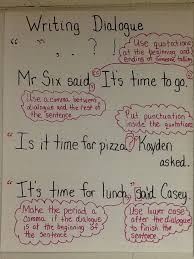 Writing Dialogue
" , . ? "
Use quotations
at the beginning
and ending of someone talking
Mr Six said, "It's time to go."
Use a comma between
dialogue and the rest of
the sentence
Put punctuation
inside the
quotations
"Is it time for pizza?" Kayden
asked.
"It's time for lunch," said Casey.
Make the period a
comma if the dialogue
is at the beginning of
the sentence
Use lower case
after the dialogue
to finish the
sentence